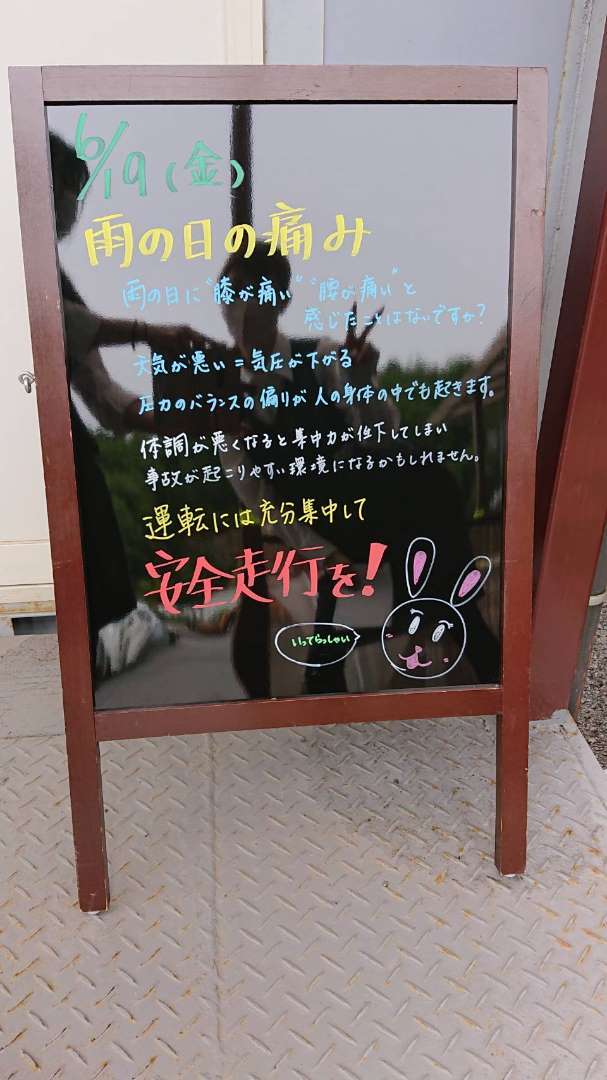 6/19(金)
雨の日の痛み
雨の日に"膝が痛い""腰が痛い"と
感じたことはないですか?
天気が悪い=気圧が下がる
圧力のバランスの偏りが人の身体の中でも起きます。
体調が悪くなると集中力が低下してしまい
事故が起こりやすい環境になるかもしれません。
運転には充分集中して
安全走行を!
いってらっしゃい